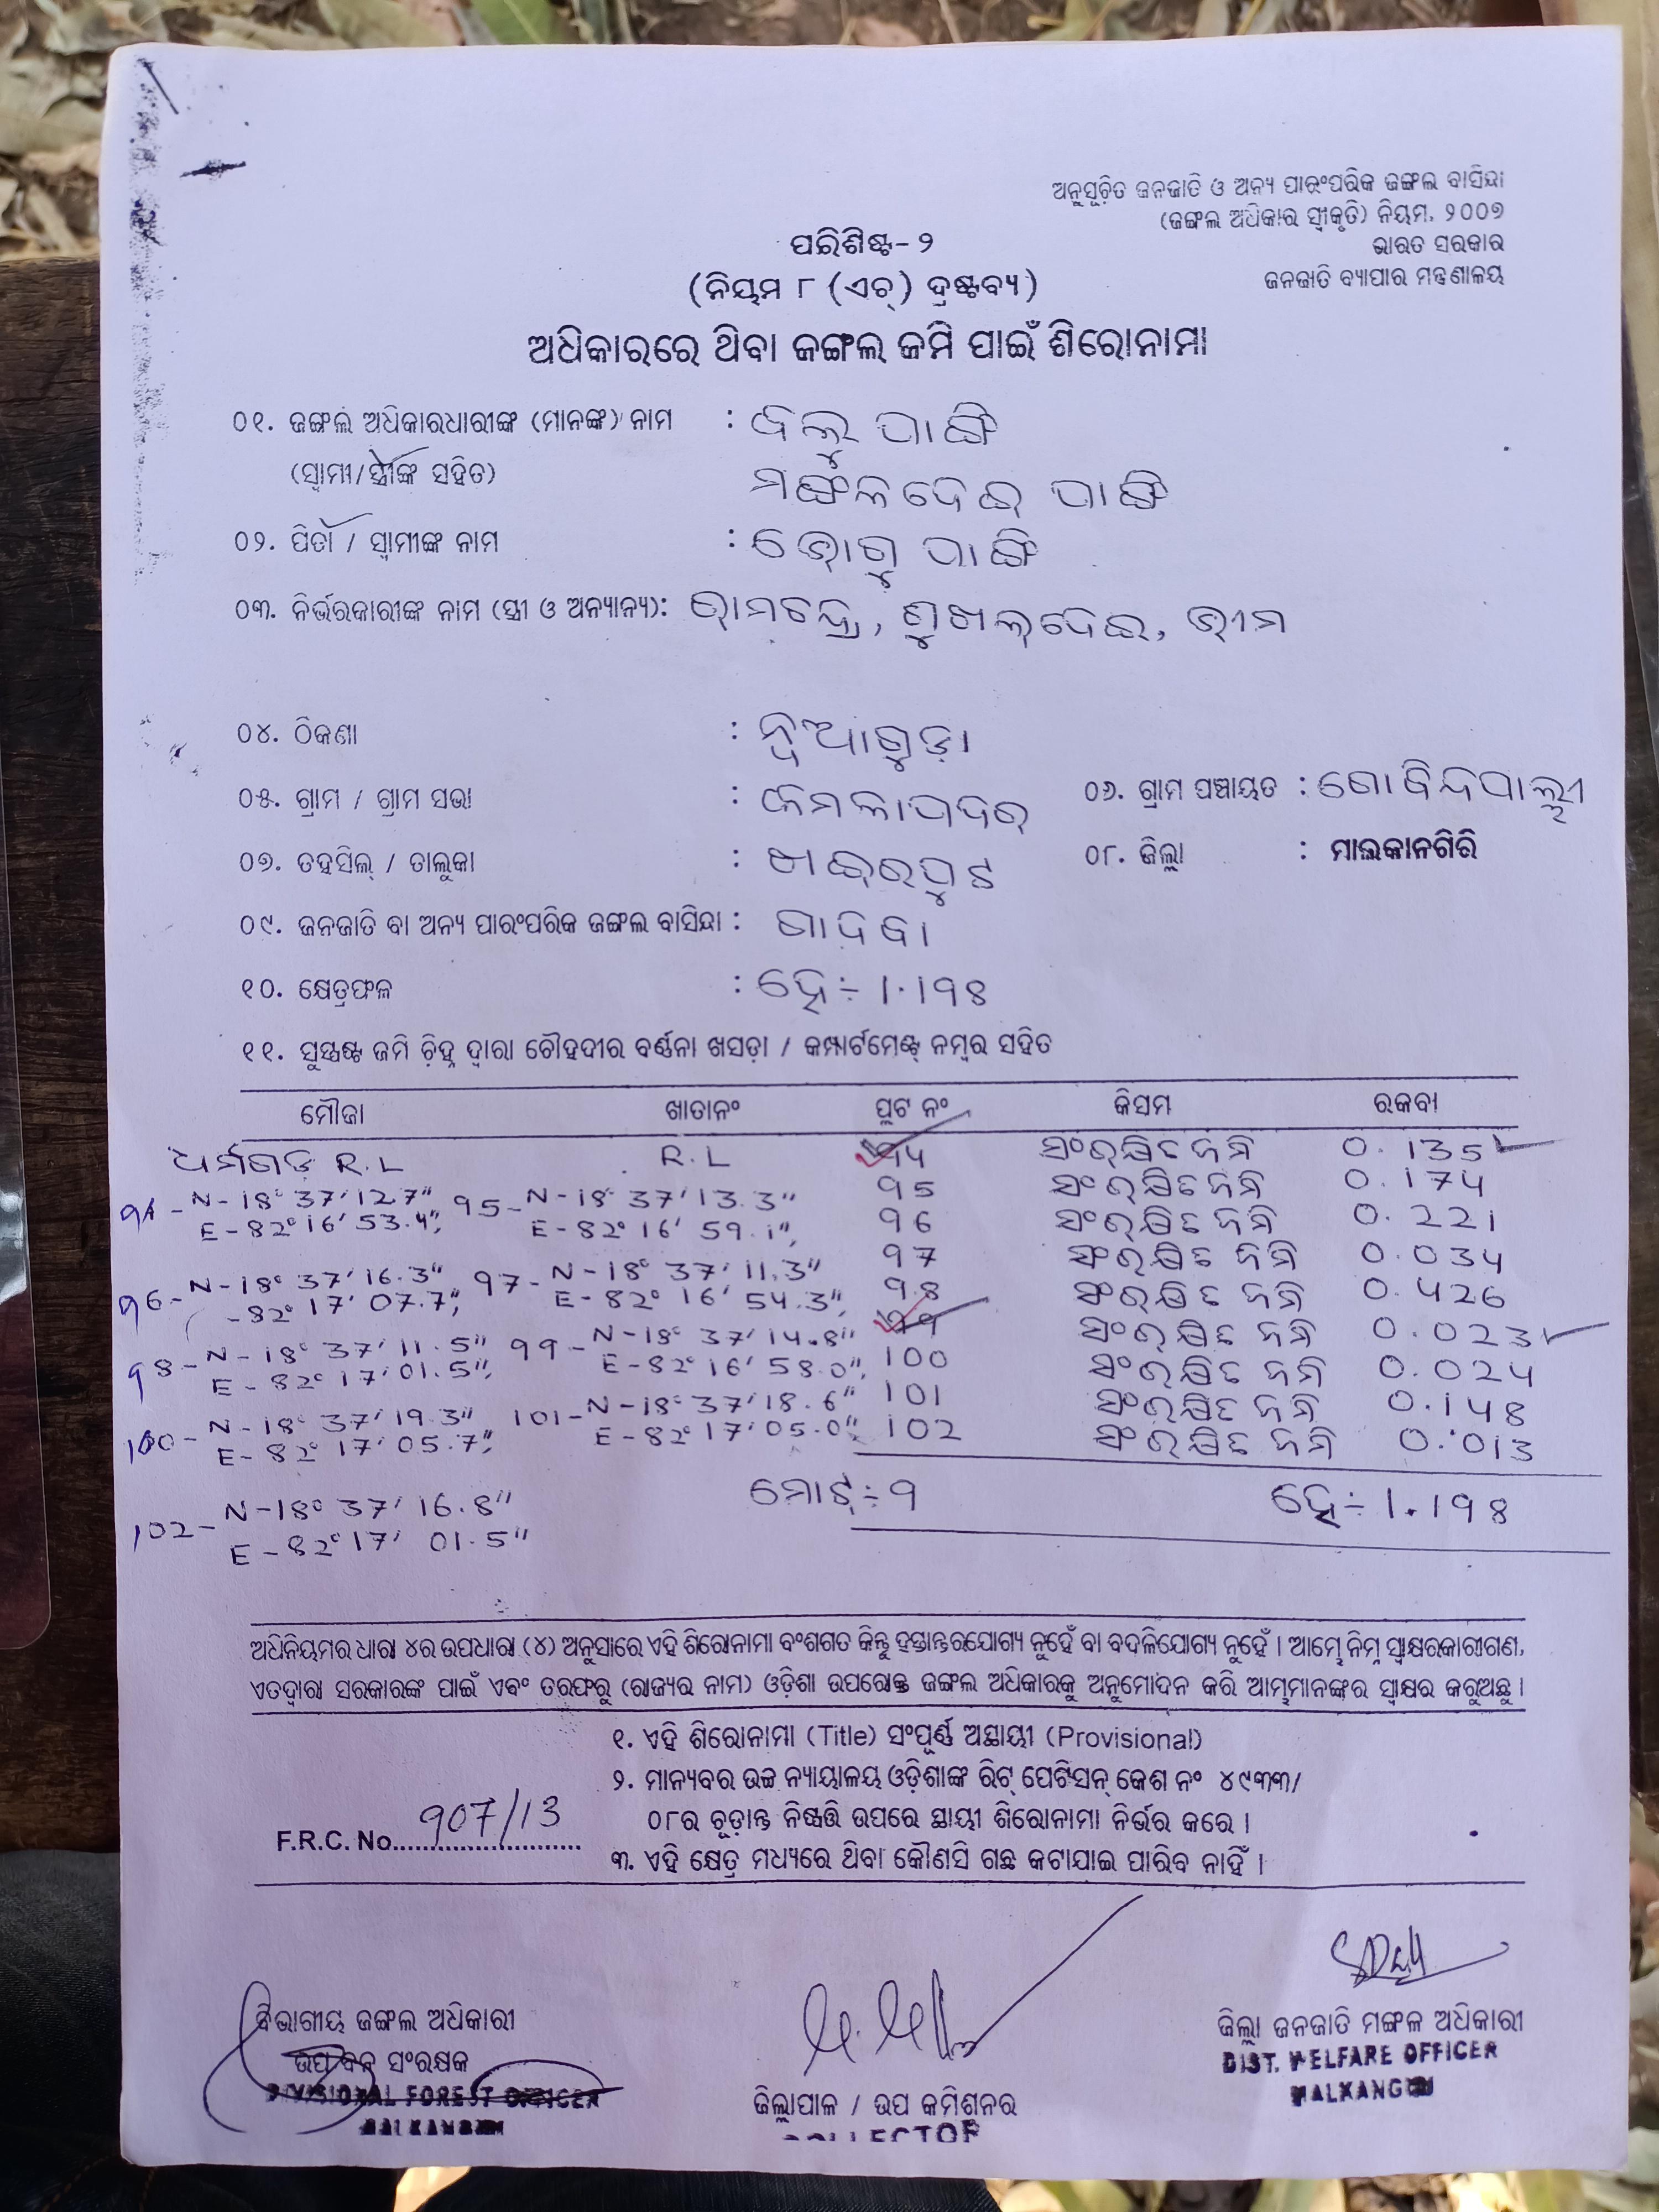 ଅନୁସୂଚିତ ଜନଜାତି ଓ ଅନ୍ୟ ପାରଂପରିକ ଜଙ୍ଗଲ ବାସିନ୍ଦା
(ଜଙ୍ଗଲ ଅଧିକାର ସ୍ୱୀକୃତି) ନିୟମ, ୨୦୦୭
ଭାରତ ସରକାର
ଜନଜାତି ବ୍ୟାପାର ମନ୍ତ୍ରଣାଳୟ
ପରିଶିଷ୍ଟ- ୨
(ନିୟମ ୮ (ଏଚ୍) ଦ୍ରଷ୍ଟବ୍ୟ)
ଅଧିକାରରେ ଥିବା ଜଙ୍ଗଲ ଜମି ପାଇଁ ଶିରୋନାମା
୦୧. ଜଙ୍ଗଲ ଅଧିକାରଧାରୀଙ୍କ (ମାନଙ୍କ) ନାମ : ବଲ୍ଲୁ ପାଙ୍ଗି
(ସ୍ୱାମୀ/ସ୍ତ୍ରୀଙ୍କ ସହିତ) ମଙ୍ଗଳଦେଇ ପାଙ୍ଗି
୦୨. ପିତା / ସ୍ୱାମୀଙ୍କ ନାମ : ପାଙ୍ଗି
୦୩. ନିର୍ଭରକାରୀଙ୍କ ନାମ (ସ୍ତ୍ରୀ ଓ ଅନ୍ୟାନ୍ୟ): ରାମଚନ୍ଦ୍ର, ଭୀମ
୦୪. ଠିକଣା : ନୂଆଗୁଡ଼ା
୦୫. ଗ୍ରାମ / ଗ୍ରାମ ସଭା : କମଳାପଦର ୦୬. ଗ୍ରାମ ପଞ୍ଚାୟତ : ଗୋବିନ୍ଦପାଲ୍ଲୀ
୦୭. ତହସିଲ୍ / ତାଲୁକା : ଖଇରପୁଟ ୦୮. ଜିଲ୍ଲା : ମାଲକାନଗିରି
୦୯. ଜନଜାତି ବା ଅନ୍ୟ ପାରଂପରିକ ଜଙ୍ଗଲ ବାସିନ୍ଦା : ଗାଦବା
୧୦. କ୍ଷେତ୍ରଫଳ : ହେ÷ 1.198
୧୧. ସୁସ୍ପଷ୍ଟ ଜମି ଚିହ୍ନ ଦ୍ୱାରା ଚୌହଦୀର ବର୍ଣ୍ଣନା ଖସଡ଼ା / କମ୍ପାର୍ଟମେଣ୍ଟ୍ ନମ୍ବର ସହିତ
ମୌଜା ଖାତାନଂ ପ୍ଲଟ ନଂ କିସମ ରକବା
ଧର୍ମଗଡ଼ R.L R.L 94 ସଂରକ୍ଷିତ ଜମି 0.135
94 - N-18° 37' 12.7" 95 - N-18° 37' 13.3" 95 ସଂରକ୍ଷିତ ଜମି 0.174
E-82° 16' 53.4", E-82° 16' 59.1", 96 ସଂରକ୍ଷିତ ଜମି 0.221
96 - N-18° 37' 16.3" 97 - N-18° 37' 11.3" 97 ସଂରକ୍ଷିତ ଜମି 0.034
-82° 17' 07.7", E-82° 16' 54.3", 98 ସଂରକ୍ଷିତ ଜମି 0.426
98 - N-18° 37' 11.5" 99 - N-18° 37' 14.8" 99 ସଂରକ୍ଷିତ ଜମି 0.023
E-82° 17' 01.5", E-82° 16' 58.0", 100 ସଂରକ୍ଷିତ ଜମି 0.024
100 - N-18° 37' 19.3" 101 - N-18° 37' 18.6" 101 ସଂରକ୍ଷିତ ଜମି 0.148
E-82° 17' 05.7", E-82° 17' 05.0", 102 ସଂରକ୍ଷିତ ଜମି 0.013
102 - N-18° 37' 16.8" ମୋଟ୍÷ 9 ହେ÷ 1.198
E-82° 17' 01.5"
ଅଧିନିୟମର ଧାରା ୪ର ଉପଧାରା (୪) ଅନୁସାରେ ଏହି ଶିରୋନାମା ବଂଶଗତ କିନ୍ତୁ ହସ୍ତାନ୍ତରଯୋଗ୍ୟ ନୁହେଁ ବା ବଦଳିଯୋଗ୍ୟ ନୁହେଁ । ଆମ୍ଭେ ନିମ୍ନ ସ୍ୱାକ୍ଷରକାରୀଗଣ,
ଏତଦ୍ୱାରା ସରକାରଙ୍କ ପାଇଁ ଏବଂ ତରଫରୁ (ରାଜ୍ୟର ନାମ) ଓଡ଼ିଶା ଉପରୋକ୍ତ ଜଙ୍ଗଲ ଅଧିକାରକୁ ଅନୁମୋଦନ କରି ଆମ୍ଭମାନଙ୍କର ସ୍ୱାକ୍ଷର କରୁଅଛୁ ।
୧. ଏହି ଶିରୋନାମା (Title) ସଂପୂର୍ଣ୍ଣ ଅସ୍ଥାୟୀ (Provisional)
୨. ମାନ୍ୟବର ଉଚ୍ଚ ନ୍ୟାୟାଳୟ ଓଡ଼ିଶାଙ୍କ ରିଟ୍ ପେଟିସନ୍ କେଶ ନଂ ୪୯୩୩/
୦୮ର ଚୂଡ଼ାନ୍ତ ନିଷ୍ପତ୍ତି ଉପରେ ସ୍ଥାୟୀ ଶିରୋନାମା ନିର୍ଭର କରେ ।
F.R.C. No. 907/13
୩. ଏହି କ୍ଷେତ୍ର ମଧ୍ୟରେ ଥିବା କୌଣସି ଗଛ କଟାଯାଇ ପାରିବ ନାହିଁ ।
ବିଭାଗୀୟ ଜଙ୍ଗଲ ଅଧିକାରୀ
ଉପ ବନ ସଂରକ୍ଷକ
DIVISIONAL FOREST OFFICER
MALKANGIRI
ଜିଲ୍ଲାପାଳ / ଉପ କମିଶନର
COLLECTOR
ଜିଲ୍ଲା ଜନଜାତି ମଙ୍ଗଳ ଅଧିକାରୀ
DIST. WELFARE OFFICER
MALKANGIRI